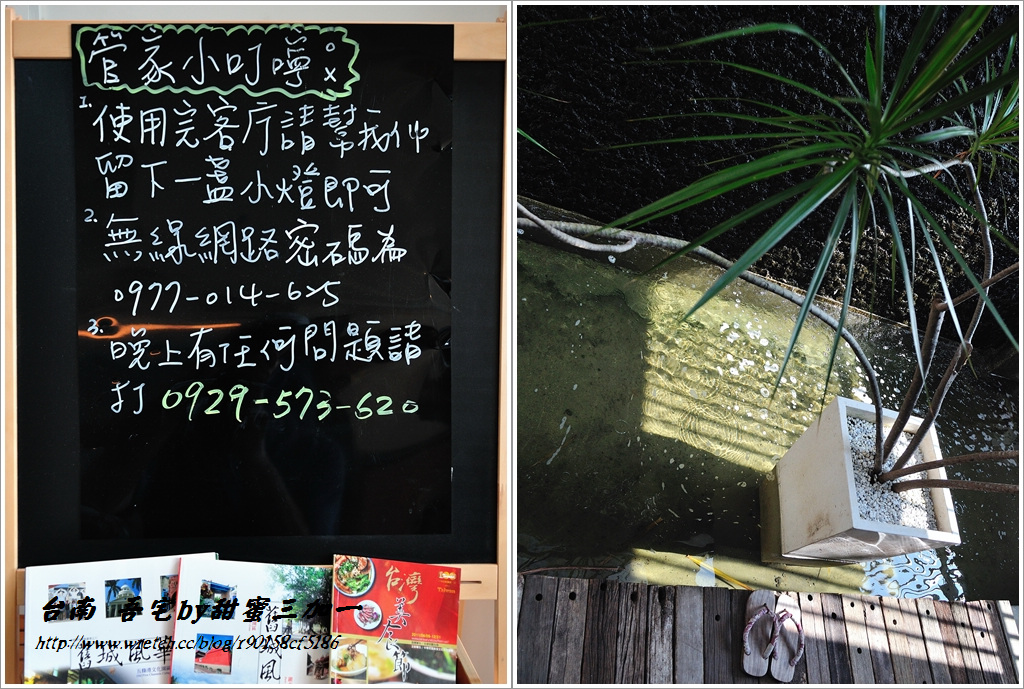 管家小叮嚀:
1. 使用完客厅請幫我们
留下一盞小燈即可
2. 無線網路密碼為
0977-014-625
3. 晚上有任何問題請
打 0929-573-620
台灣
美食節
舊城風華
舊城風
台南 春宅by甜蜜三加一
http://www.wretch.cc/blog/r90158cf5186